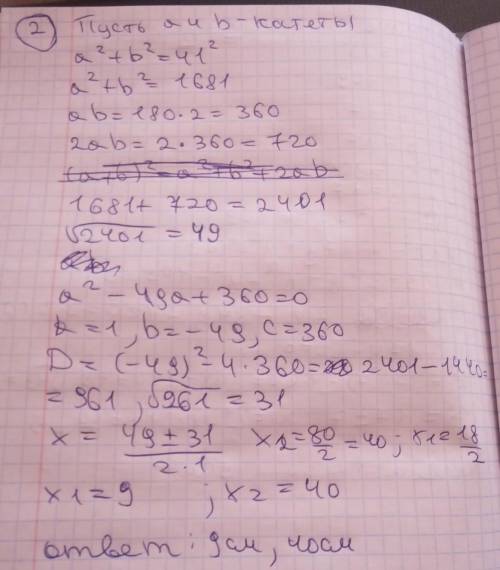 2 Пусть a и b - катеты
a² + b² = 41²
a² + b² = 1681
ab = 180 · 2 = 360
2ab = 2 · 360 = 720
(a+b)² = a² + b² + 2ab
1681 + 720 = 2401
√2401 = 49
a² - 49a + 360 = 0
a = 1, b = -49, c = 360
D = (-49)² - 4 · 360 = 2401 - 1440 =
= 961, √961 = 31
x = (49 ± 31)/(2 · 1) x2 = 80/2 = 40; x1 = 18/2
x1 = 9 ; x2 = 40
ответ: 9см, 40см